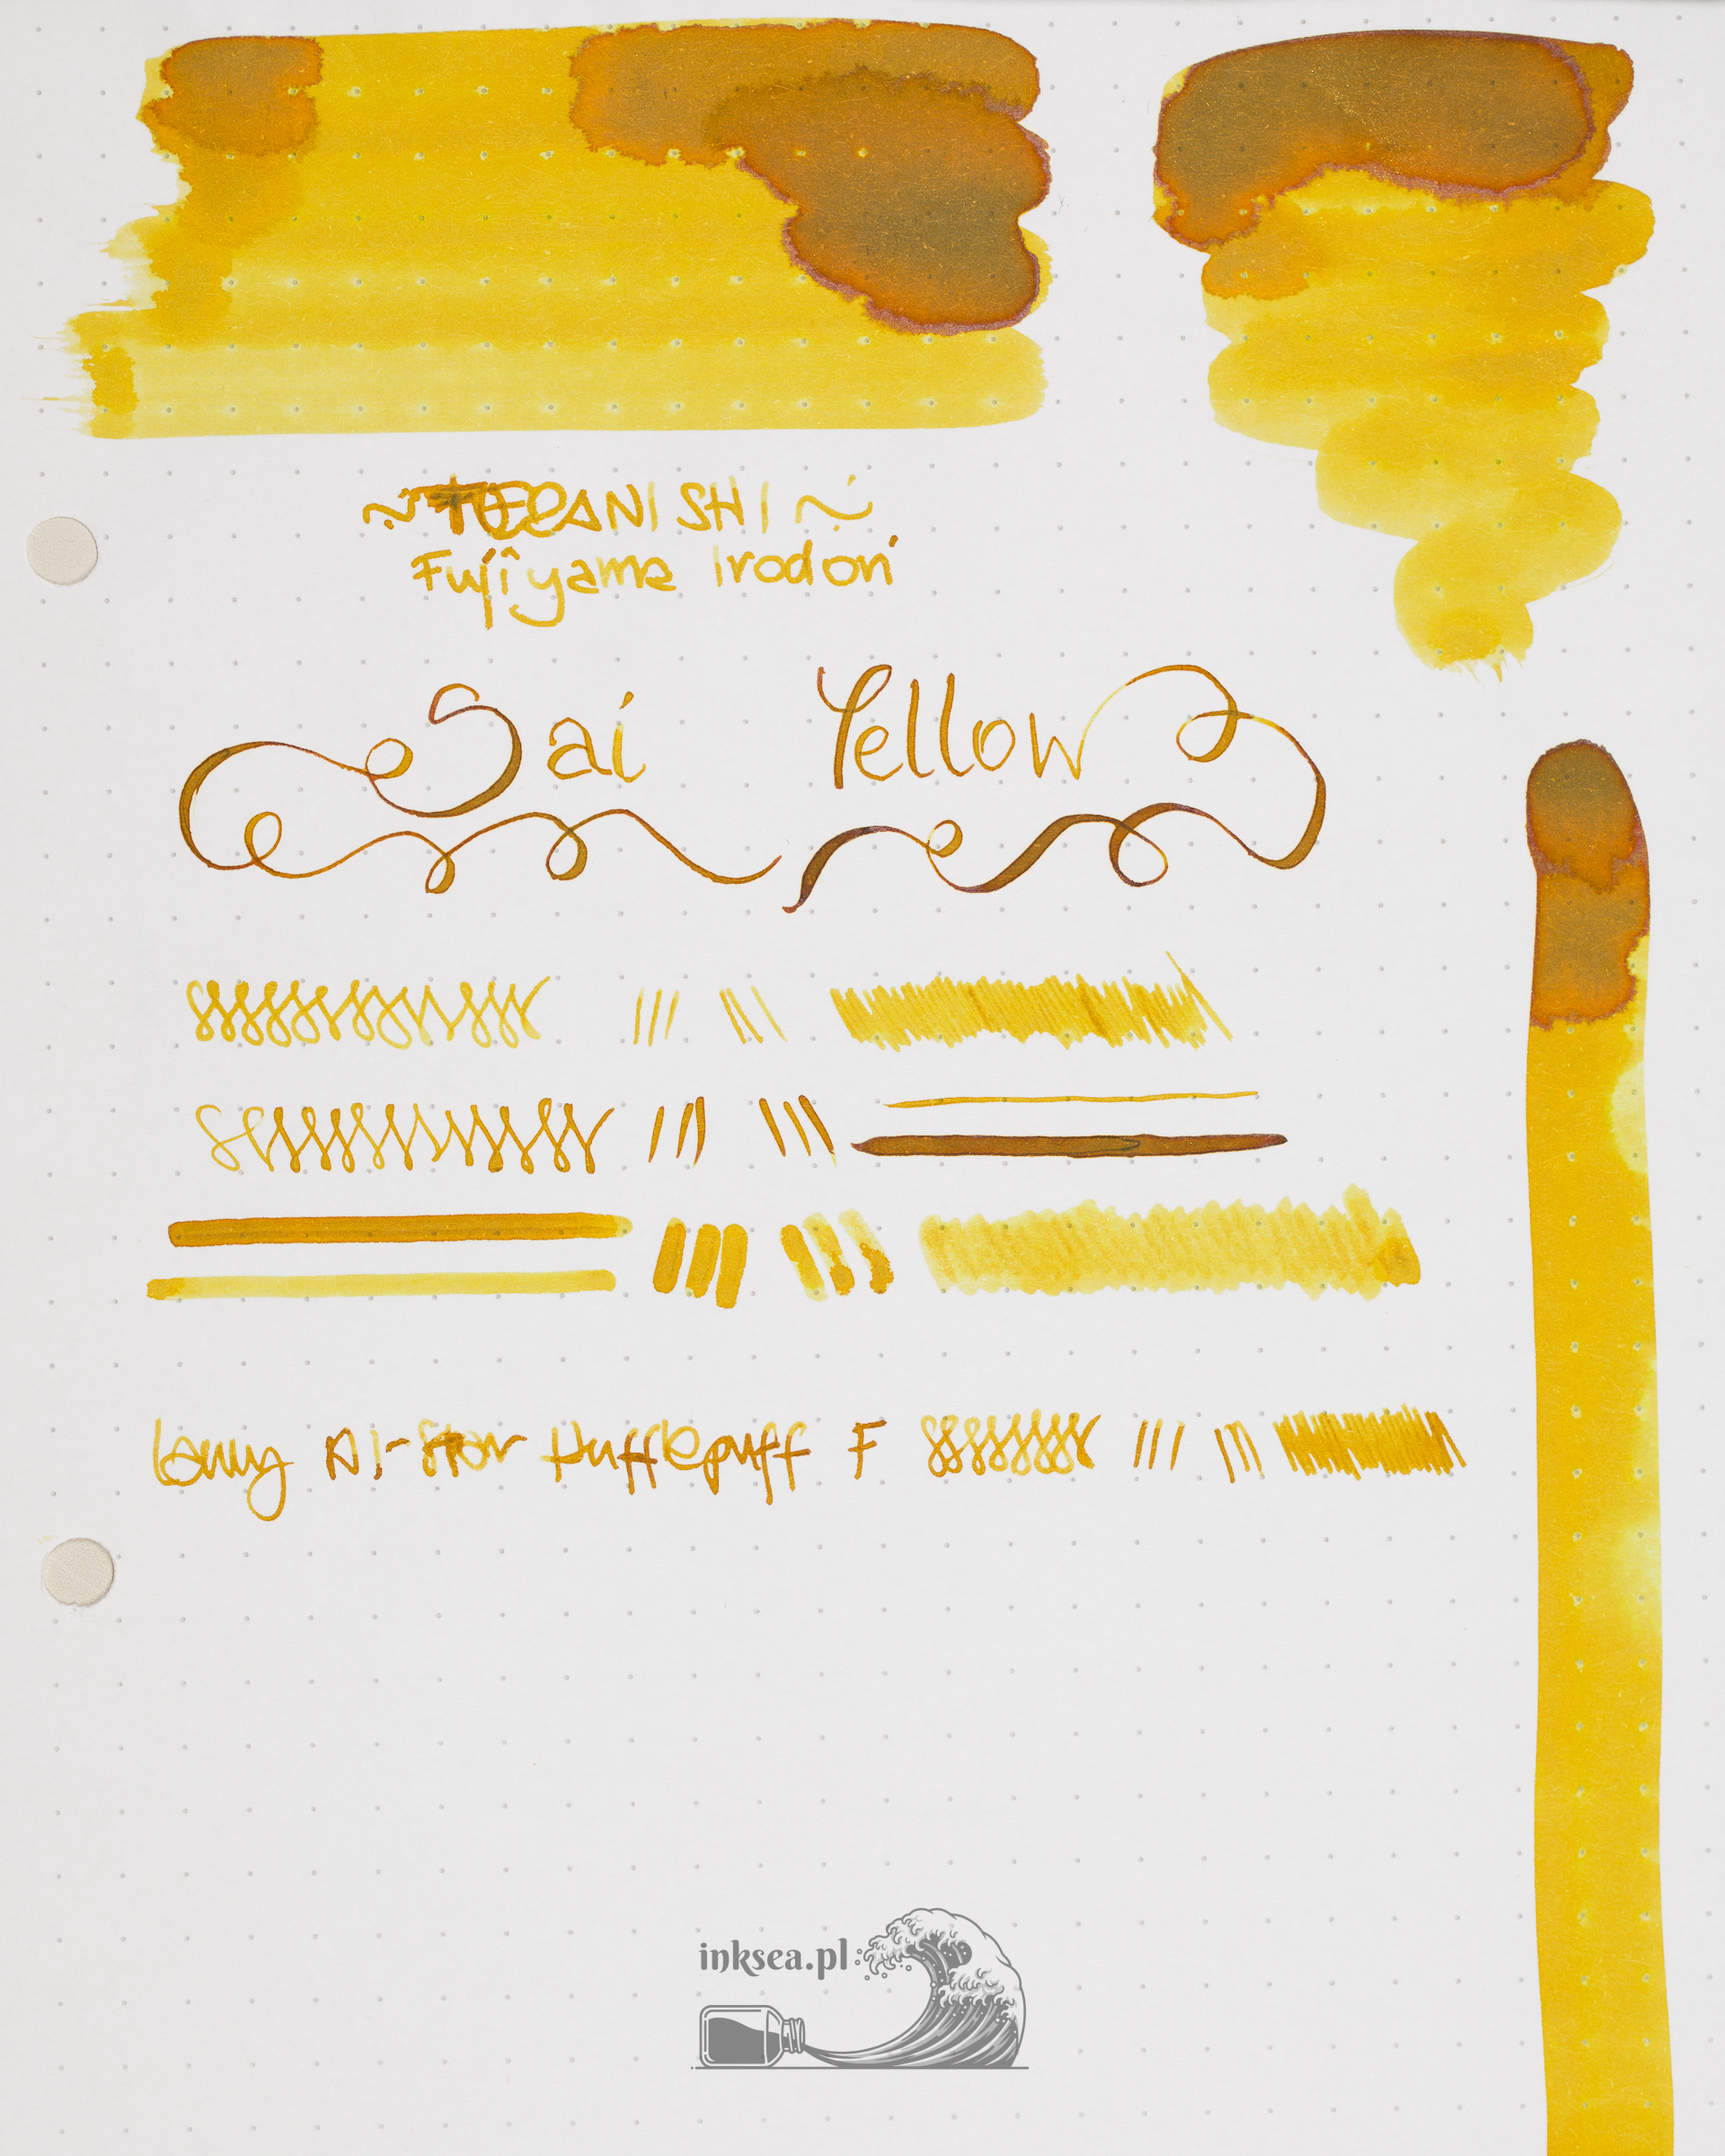 ~ TOCANISHI ~
Fujiyama Irodori
Sai Yellow
Lamy Al-Star Hufflepuff F
inksea.pl